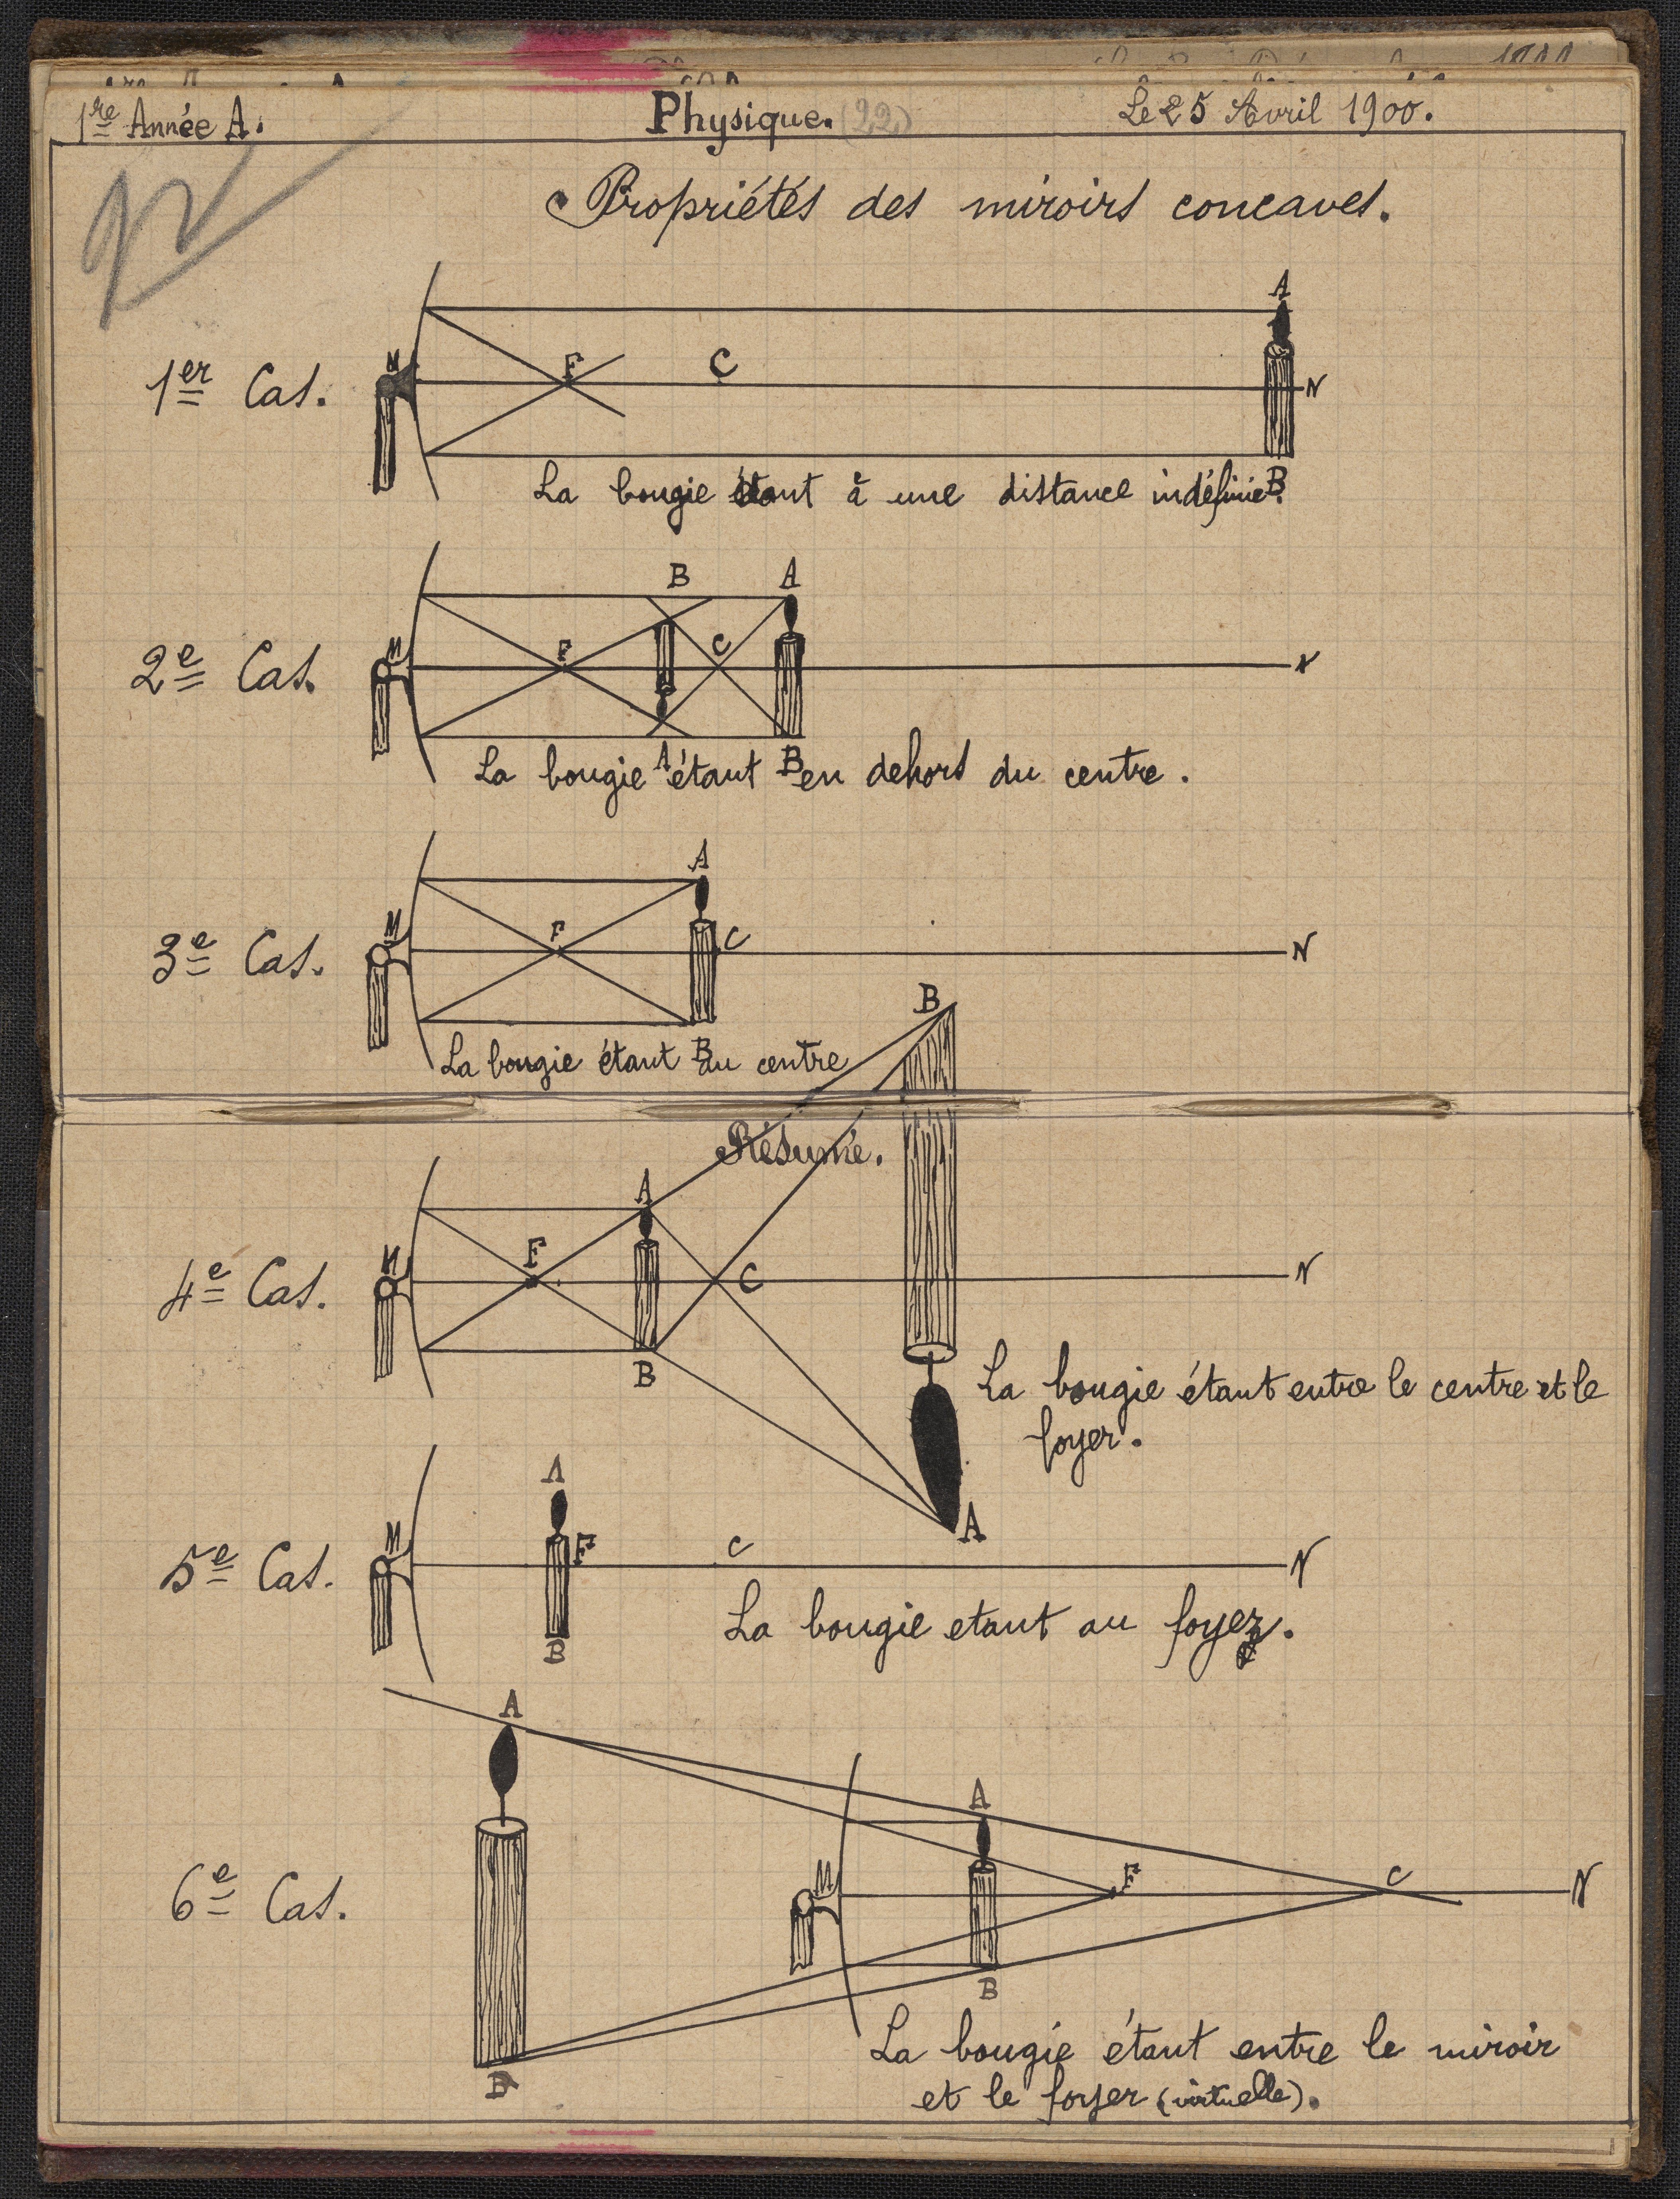 1re Année A. Physique. (22) Le 25 Avril 1900.
Propriétés des miroirs concaves.
A
1er Cas. M F C N
La bougie étant à une distance indéfinie. B
B A
2e Cas. M F C N
A B
La bougie étant en dehors du centre.
A
3e Cas. M F C N
B
La bougie étant au centre
B
Résumé.
A
4e Cas. M F C N
B
La bougie étant entre le centre et le
foyer.
A
A
5e Cas. M F C N
B
La bougie etant au foyer.
A
A
6e Cas. M F C N
B
B
La bougie étant entre le miroir
et le foyer (virtuelle).